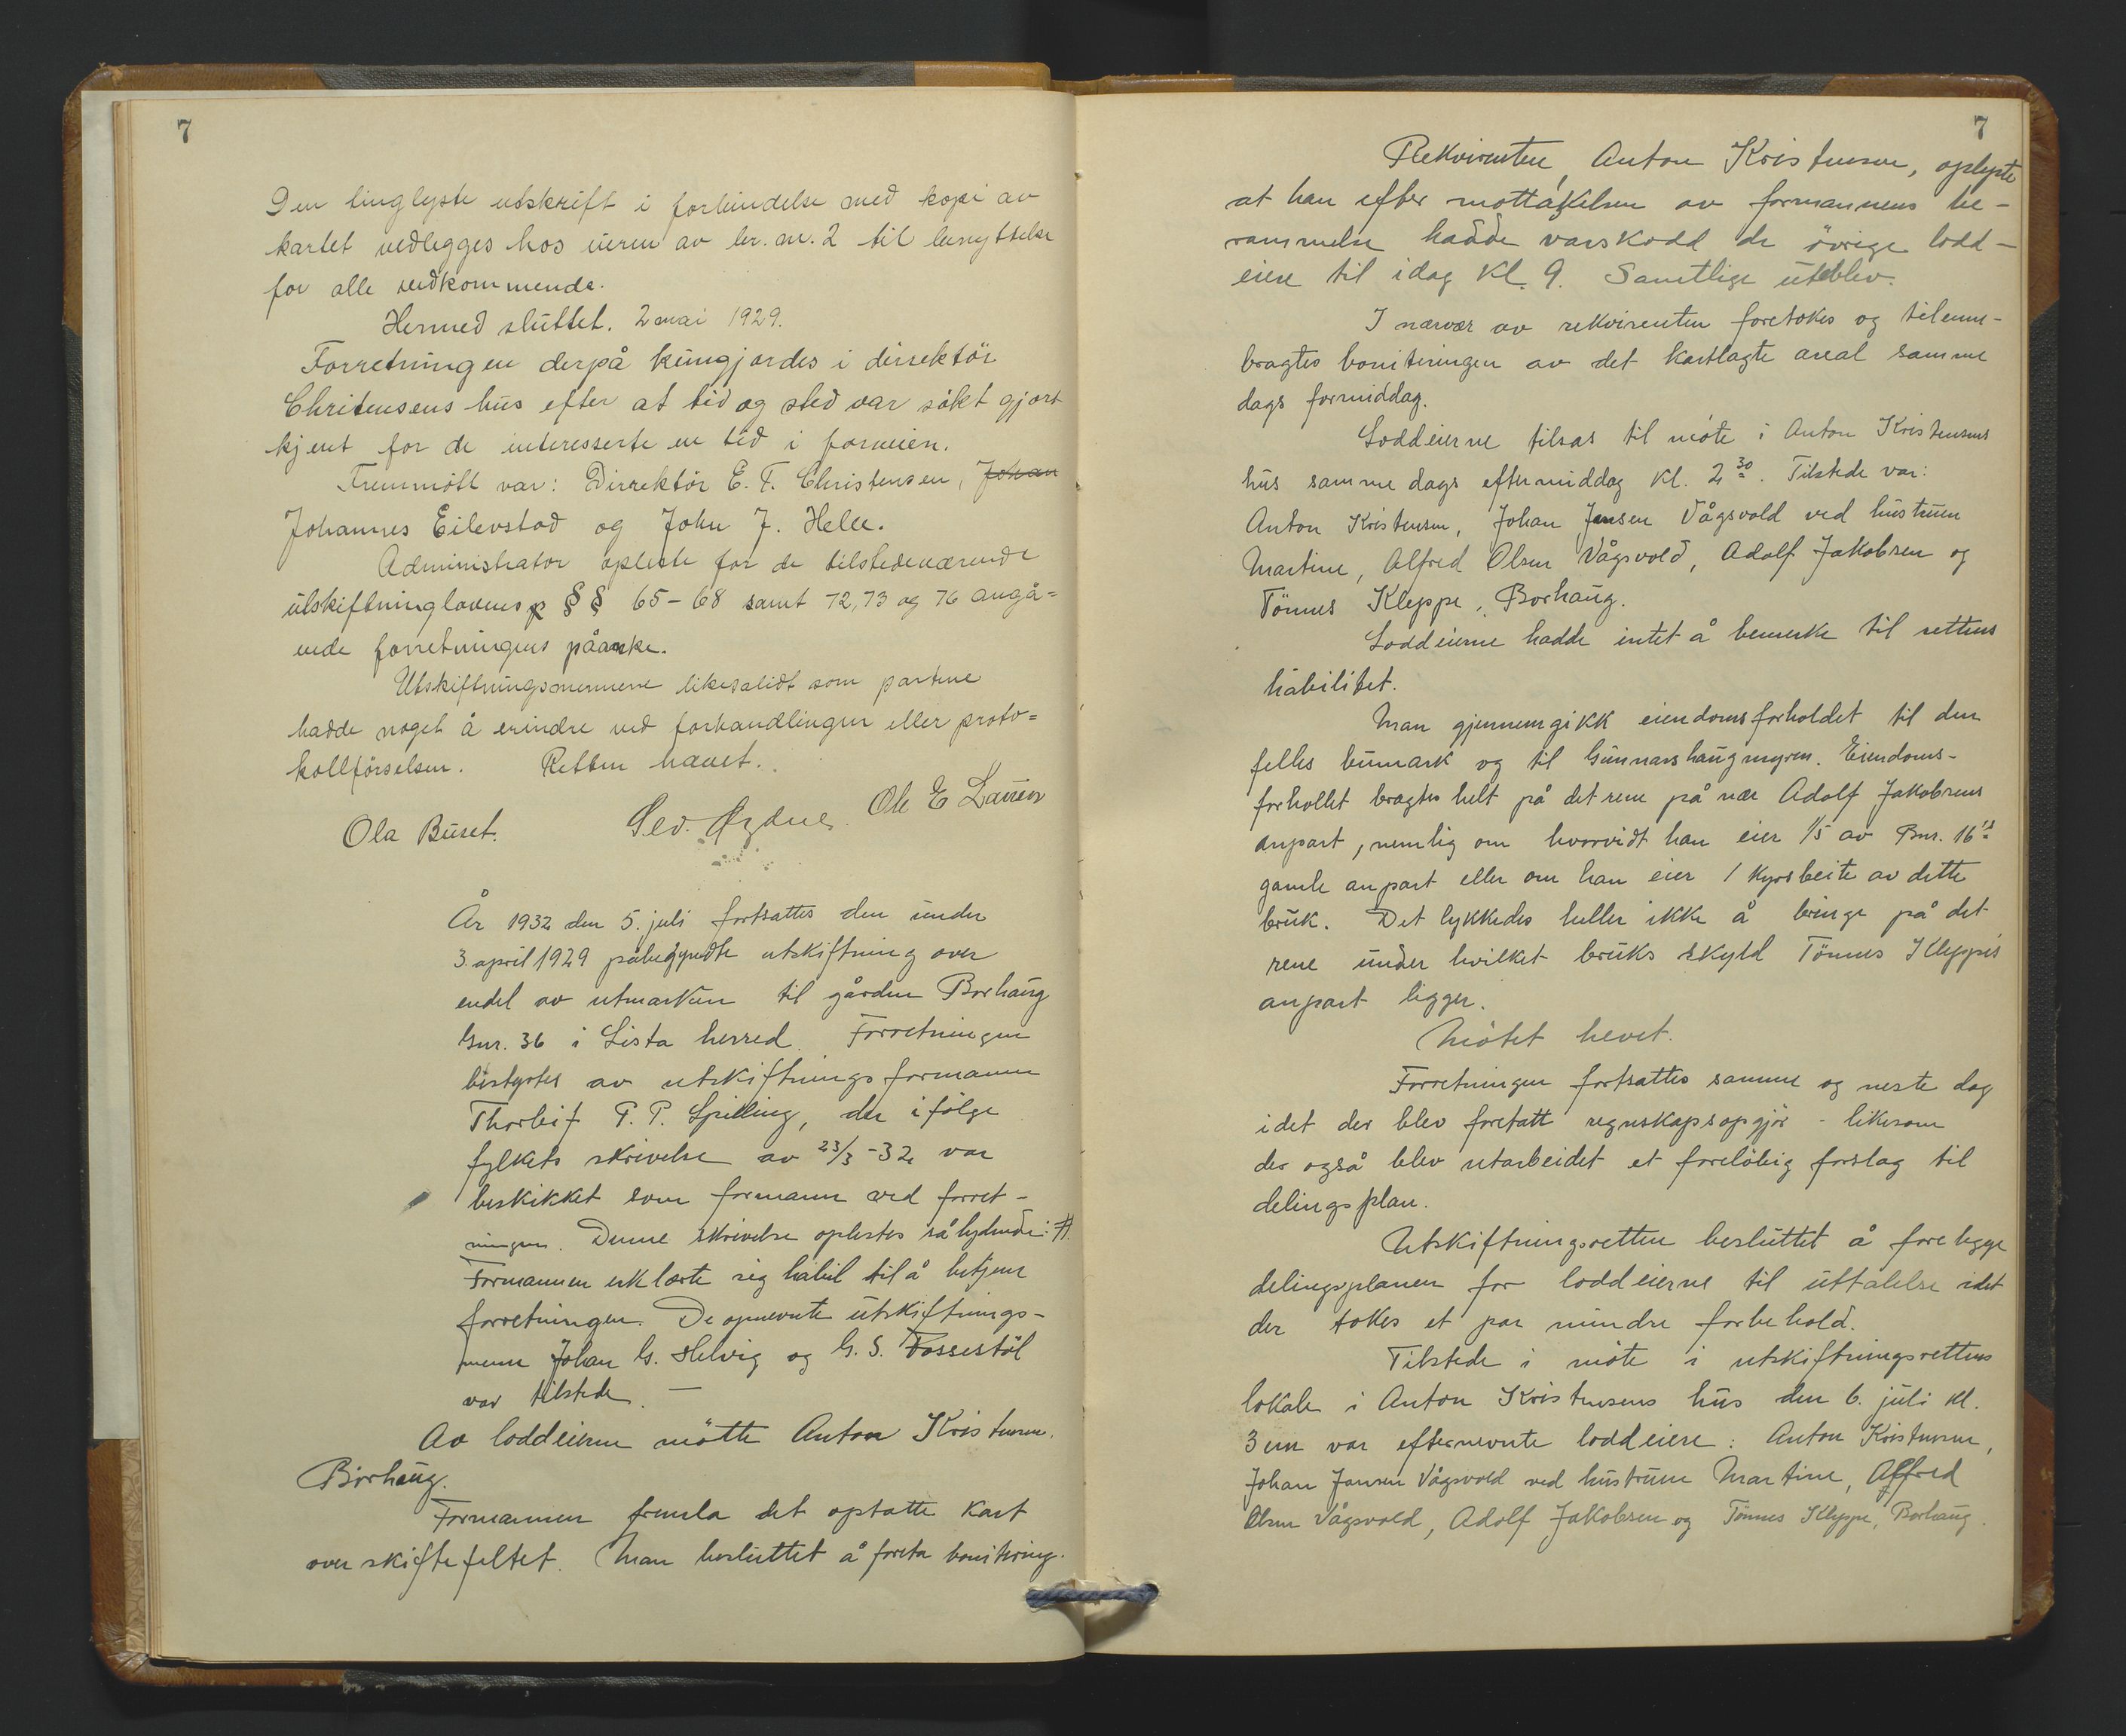 7
Den tinglyste utskrift i forbindelse med kopi av
kartet vedlegges hos eieren av br. nr. 2 til benyttelse
for alle vedkommende.
Hermed sluttet. 2 mai 1929.
Forretningen derpå kungjordes i dirrektör
Christensens hus efter at tid og sted var sökt gjort
kjent for de interesserte en tid i forveien.
Fremmött var: Dirrektör E. F. Christensen, Johan
Johannes Eilevstad og John J. Helle.
Administrator opleste for de tilstedeværende
utskiftninglovens §§ 65-68 samt 72, 73 og 76 angå=
ende forretningens påanke.
Utskiftningsmennene likesålidt som partene
hadde noget å erindre ved forhandlingen eller proto=
kollförselsen. Retten hævet.
Ola Buset. Ole E Lauen
År 1932 den 5. juli fortsattes den under
3. april 1929 påbegyndte utskiftning over
endel av utmarken til gården Borhaug
Gnr. 36 i Lista herred. Forretningen
bestyrtes av utskiftningsformann
Thorleif P. P. Spilling, der ifölge
fylkets skrivelse av 23/3-32 var
beskikket som formann ved forret-
ningen. Denne skrivelse oplestes så lydende: #.
Formannen erklærte sig habil til å betjene
forretningen. De opnevnte utskiftnings-
menn Johan G. Helvig og G. S. Fossestöl
var tilstede. —
Av loddeierne mötte Anton Kristensen,
Borhaug.
Formannen fremla det optatte kart
over skiftefeltet. Man besluttet å foreta bonitering.
7
Rekvirenten, Anton Kristensen, oplyste
at han efter mottakelsen av formannens be-
rammelse hadde varskodd de övrige lodd-
eiere til idag kl. 9. Samtlige uteblev.
I nærvær av rekvirenten foretokes og tilende-
bragtes boniteringen av det kartlagte areal samme
dags formiddag.
Loddeierne tilsas til möte i Anton Kristensens
hus samme dags eftermiddag kl. 2 30. Tilstede var:
Anton Kristensen, Johan Jensen Vågsvold ved hustruen
Martine, Alfred Olsen Vågsvold, Adolf Jakobsen og
Tönnes Kleppe, Borhaug.
Loddeierne hadde intet å bemerke til rettens
habilitet.
Man gjennemgikk eiendomsforholdet til den
felles bumark og til Gunnarshaugmyren. Eiendoms-
forholdet bragtes helt på det rene på nær Adolf Jakobsens
anpart, nemlig om hvorvidt han eier 1/5 av Bnr. 16's
gamle anpart eller om han eier 1 kyrsbeite av dette
bruk. Det lykkedes heller ikke å bringe på det
rene under hvilket bruks skyld Tönnes Kleppes
anpart ligger.
Mötet hevet.
Forretningen fortsattes samme og neste dag
idet der blev foretatt regnskapsopgjör - likesom
der også blev utarbeidet et foreløbig forslag til
delingsplan.
Utskiftningsretten besluttet å forelegge
delingsplanen for loddeierne til uttalelse idet
der tokes et par mindre forbehold.
Tilstede i möte i utskiftningsrettens
lokale i Anton Kristensens hus den 6. juli kl.
3 em var efternevnte loddeiere: Anton Kristensen,
Johan Jansen Vågsvold ved hustruen Martine, Alfred
Olsen Vågsvold, Adolf Jakobsen og Tönnes Kleppe, Borhaug.